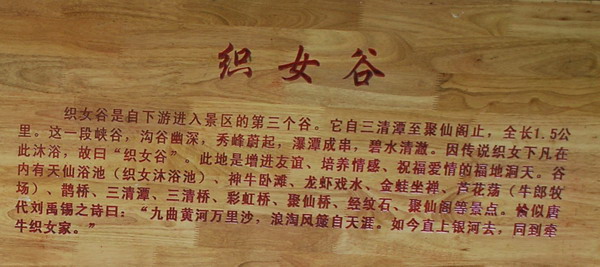 织女谷
织女谷是自下游进入景区的第三个谷。它自三清潭至聚仙阁止，全长1.5公
里。这一段峡谷，沟谷幽深，秀峰蔚起，瀑潭成串，碧水清澈。因传说织女下凡在
此沐浴，故曰“织女谷”。此地是增进友谊、培养情感、祝福爱情的福地洞天。谷
内有天仙浴池（织女沐浴池）、神牛卧滩、龙虾戏水、金蛙坐禅、芦花荡（牛郎牧
场）、鹊桥、三清潭、三清桥、彩虹桥、聚仙桥、经纹石、聚仙阁等景点。恰似唐
代刘禹锡之诗曰：“九曲黄河万里沙，浪淘风簸自天涯。如今直上银河去，同到牵
牛织女家。”